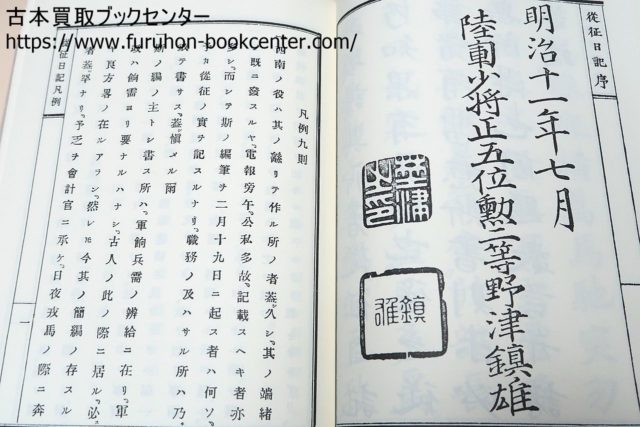 古本買取ブックセンター
https://www.furuhon-bookcenter.com/
從征日記序
明治十一年七月
陸軍少將正五位勲二等野津鎮雄
鎮雄
凡例九則
西南ノ役ハ其ノ釁リテ作ル所ノ者蓋シ久シ其ノ端緒
既ニ發スルヤ電報旁午公私多故記載スヘキ者亦
多シ而シテ斯ノ編筆ヲ二月十九日ニ起ス者ハ何ソ
ヤ從征ノ實ヲ記スルナリ職務ノ及ハサル所ハ乃
敢テ書サス蓋シ愼メル爾
斯ノ編ノ主トシ書ス所ハ軍餉兵需ノ辨給ニ在リ軍
ハ餉需ヨリ要ナルハナシ古人ノ此ノ際ニ居ル必
良方畧ノ在ルアラン然レ𪜈今其ノ簡編ノ存スル
者蓋シ罕ナリ予乏ヲ會計官ニ承ケ日夜戎馬ノ際ニ奔
征日記凡例
一